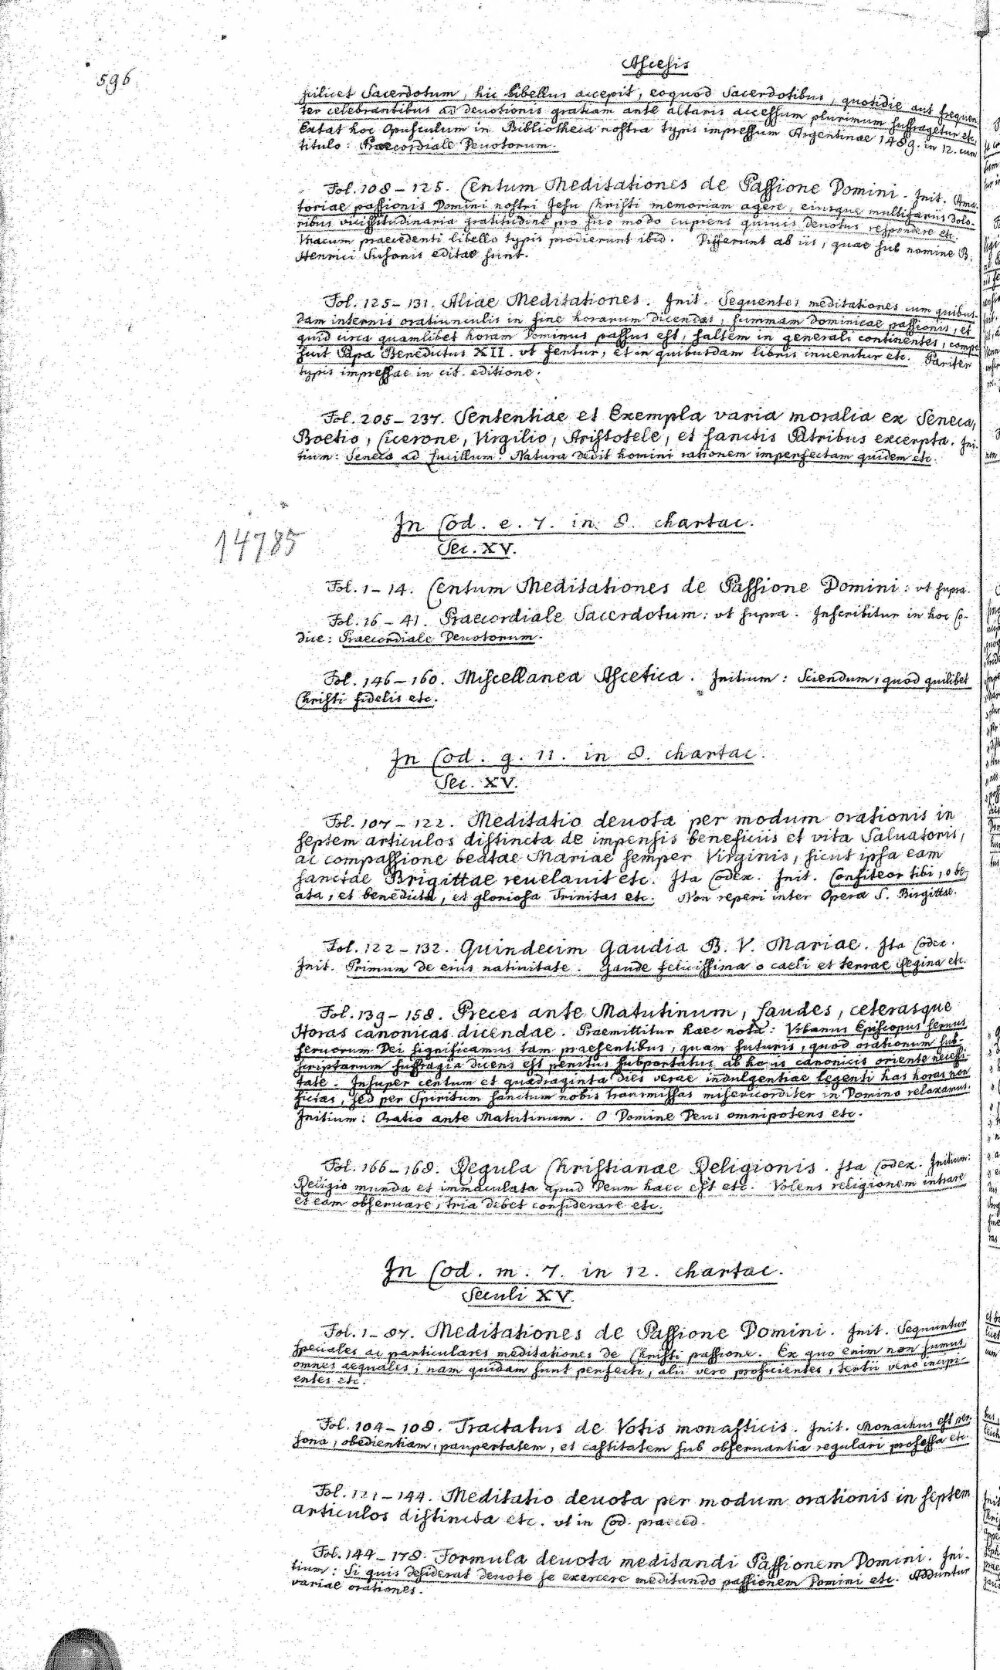 596
Ascesis
scilicet Sacerdotum, hic libellus accepit, eoquod Sacerdotibus, quotidie aut frequen
ter celebrantibus ad devotionis gratiam ante altaris accessum plurimum suffragetur etc.
Extat hoc Opusculum in Bibliotheca nostra typis impressum Argentinae 1489. in 12. cum
titulo: Praecordiale Devotorum.
Fol. 108-125. Centum Meditationes de Passione Domini. Init. Ama-
toriae passionis Domini nostri Jesu Christi memoriam agere, eiusque multifariis dolo-
ribus vicissitudinaria gratitudine pro suo modo cupiens quivis devotus respondere etc.
Vnacum praecedenti libello typis prodierunt ibid. Differunt ab iis, quae sub nomine B.
Henrici Susonis editae sunt.
Fol. 125-131. Aliae Meditationes. Init. Sequentes meditationes cum quibus-
dam internis oratiunculis in fine horarum dicendas, summam dominicae passionis, et
quid circa quamlibet horam Dominus passus est, saltem in generali continentes, compo
suit Papa Benedictus XII. vt fertur, et in quibusdam libris invenitur etc. Pariter
typis impressae in cit. editione.
Fol. 205-237. Sententiae et Exempla varia moralia ex Seneca,
Boetio, Cicerone, Virgilio, Aristotele, et sanctis Patribus excerpta. Ini-
tium: Seneca ad Lucillum: Natura dedit homini rationem imperfectam quidem etc.
14785
In Cod. e. 7. in 8. chartac.
Sec. XV.
Fol. 1-14. Centum Meditationes de Passione Domini: vt supra.
Fol. 16-41. Praecordiale Sacerdotum: vt supra. Inscribitur in hoc Co-
dice: Praecordiale Devotorum.
Fol. 146-160. Miscellanea Ascetica. Initium: Sciendum, quod quilibet
Christi fidelis etc.
In Cod. g. 11. in 8. chartac.
Sec. XV.
Fol. 107-122. Meditatio deuota per modum orationis in
septem articulos distincta de impensis beneficiis et vita Salvatoris,
ac compassione beatae Mariae semper Virginis, sicut ipsa eam
sanctae Brigittae reuelauit etc. Ita Codex. Init. Confiteor tibi, o be-
ata, et benedicta, et gloriosa Trinitas etc. Non reperi inter Opera S. Birgittae.
Fol. 122-132. Quindecim Gaudia B. V. Mariae. Ita Codex.
Init. Primum de eius nativitate. Gaude felicissima o caeli et terrae Regina etc.
Fol. 139-158. Preces ante Matutinum, Laudes, ceterasque
Horas canonicas dicendae. Praemittitur haec nota: Vrbanus Episcopus servus
servorum Dei significamus tam praesentibus, quam futuris, quod orationum sub-
scriptarum suffragia dicens est penitus supportatus ab horis canonicis oriente necessi
tate. Insuper centum et quadraginta dies verae indulgentiae legenti has horas non
ficias, sed per Spiritum sanctum nobis transmissas misericorditer in Domino relaxamus.
Initium: Oratio ante Matutinum. O Domine Deus omnipotens etc.
Fol. 166-168. Regula Christianae Religionis. Ita Codex. Initium:
Religio munda et immaculata apud Deum haec est etc. Volens religionem intrare
et eam observare, tria debet considerare etc.
In Cod. m. 7. in 12. chartac.
Seculi XV.
Fol. 1-87. Meditationes de Passione Domini. Init. Sequuntur
speciales ac particulares meditationes de Christi passione. Ex quo enim non sumus
omnes aequales, nam quidam sunt perfecti, alii vero proficientes, tertii vero incipi-
entes etc.
Fol. 104-108. Tractatus de Votis monasticis. Init. Monachus est per-
sona, obedientiam, paupertatem, et castitatem sub observantia regulari professa etc.
Fol. 121-144. Meditatio deuota per modum orationis in septem
articulos distincta etc. vt in Cod. praeced.
Fol. 144-178. Formula deuota meditandi Passionem Domini. Ini-
tium: Si quis desiderat devote se exercere meditando passionem Domini etc. Adduntur
variae orationes.